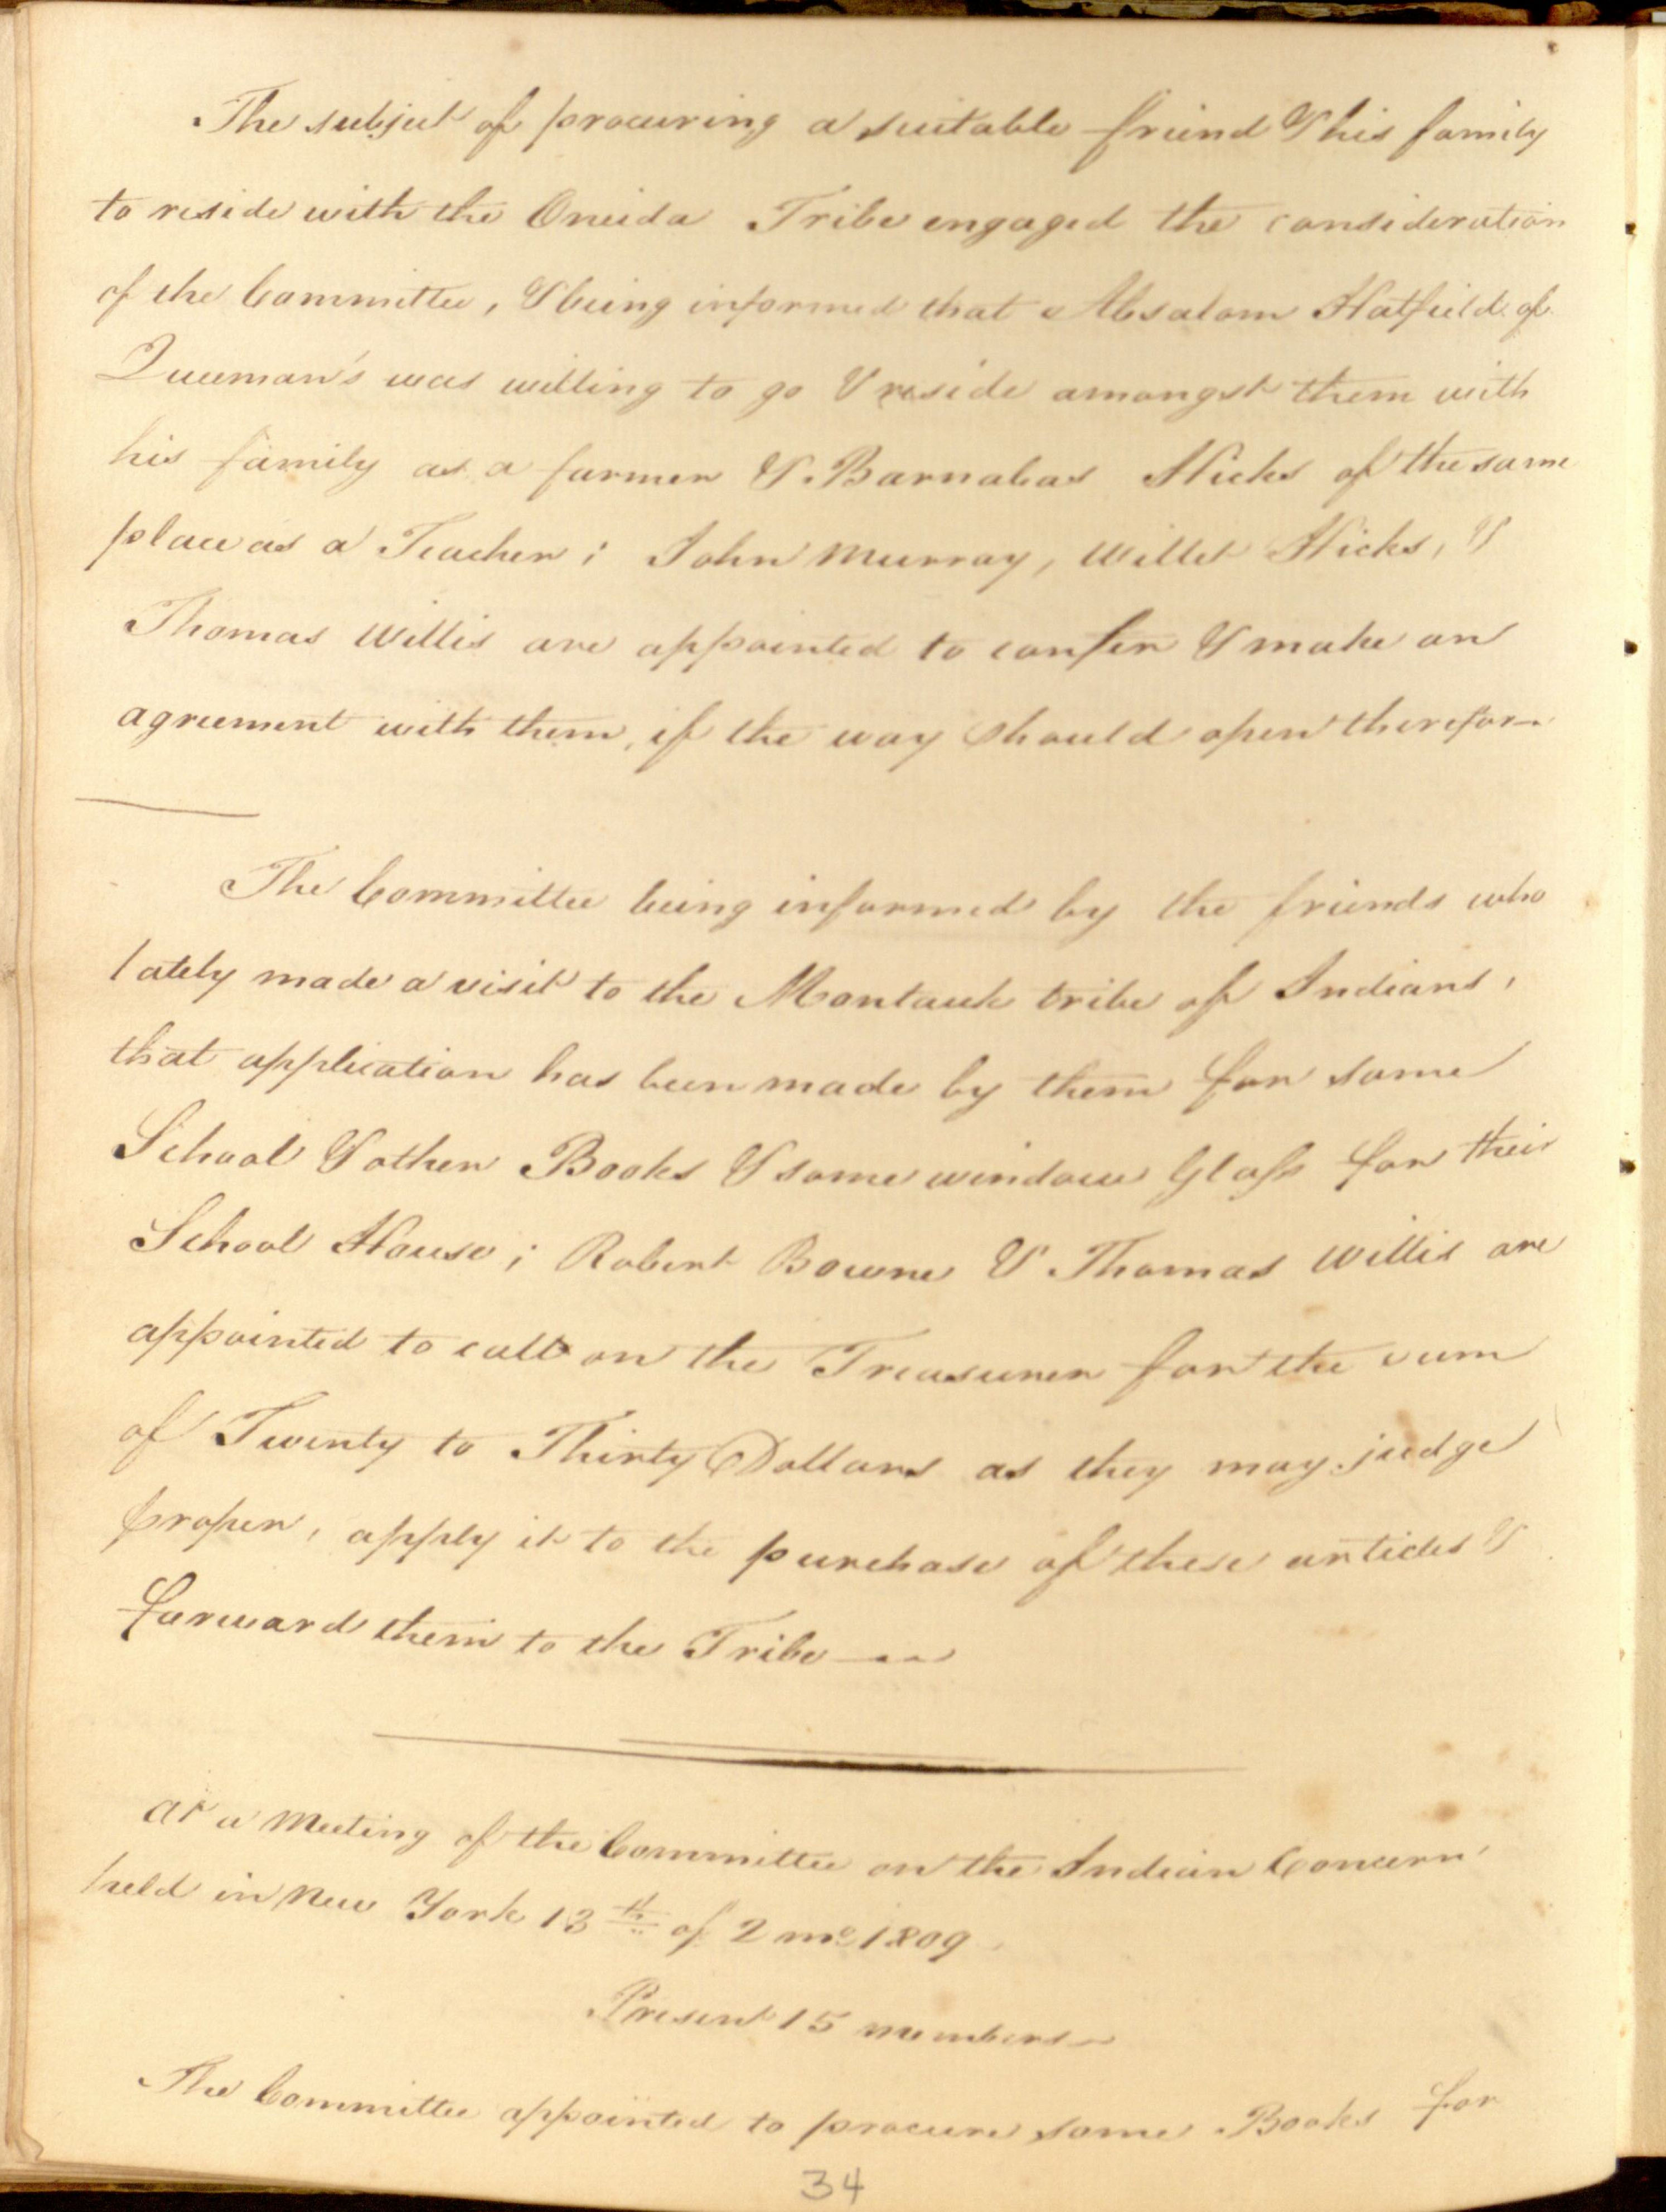 The subject of procuring a suitable friend & his family
to reside with the Oneida Tribe engaged the consideration
of the Committee, & being informed that Absalom Hatfield of
was willing to go & reside amongst them with
his family as a farmer & Barnabas Hicks of the same
place as a Teacher; John Murray, Willet Hicks, &
Thomas Willis are appointed to confer & make an
agreement with them, if the way should open therefor—
The Committee being informed by the friends who
lately made a visit to the Montauk tribe of Indians,
that application has been made by them for some
School & other Books & some window Glass for their
School House; Robert Bowne & Thomas Willis are
appointed to call on the Treasurer for the sum
of Twenty to Thirty Dollars as they may judge
proper, apply it to the purchase of these articles &
forward them to the Tribe—
At a Meeting of the Committee on the Indian Concern
held in New York 13th of 2 mo 1809.
Present 15 members—
The Committee appointed to procure some Books for
34